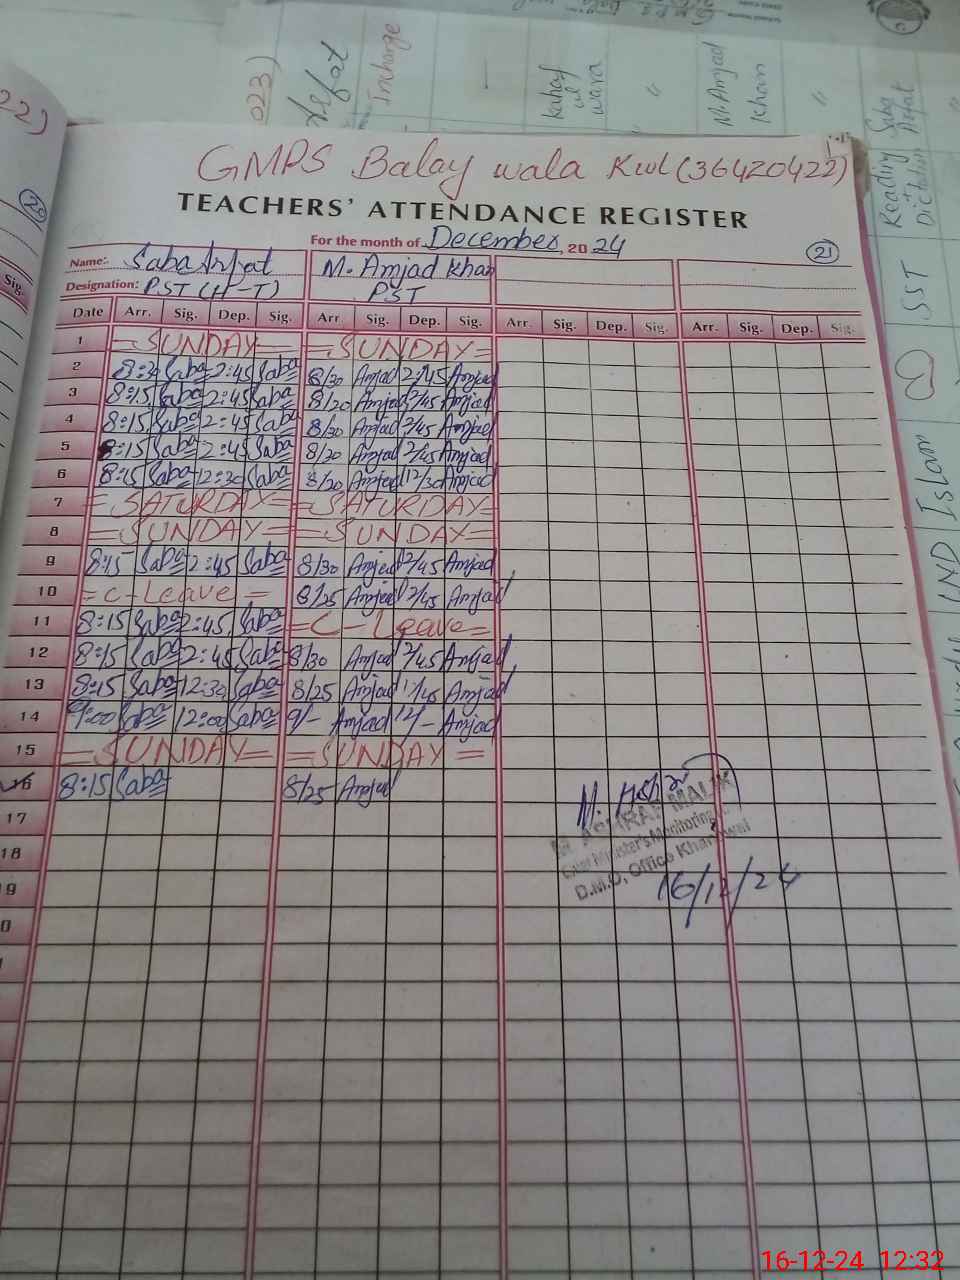 GMPS Balay wala Kwl (36420422)
TEACHERS' ATTENDANCE REGISTER
For the month of December, 20 24
21
Name: Saba Arfat M. Amjad Khan
Designation: PST (H-T) PST
Date Arr. Sig. Dep. Sig. Arr. Sig. Dep. Sig. Arr. Sig. Dep. Sig. Arr. Sig. Dep. Sig.
1 = SUNDAY = = SUNDAY =
2 8:30 Saba 2:45 Saba 8/30 Amjad 2/45 Amjad
3 8:15 Saba 2:45 Saba 8/20 Amjad 2/45 Amjad
4 8:15 Saba 2:45 Saba 8/30 Amjad 2/45 Amjad
5 8:15 Saba 2:45 Saba 8/20 Amjad 2/45 Amjad
6 8:15 Saba 12:30 Saba 8/20 Amjad 12/30 Amjad
7 = SATURDAY = = SATURDAY =
8 = SUNDAY = = SUNDAY =
9 8:15 Saba 2:45 Saba 8/30 Amjad 2/45 Amjad
10 = C-Leave = 8/25 Amjad 2/45 Amjad
11 8:15 Saba 2:45 Saba = C-Leave =
12 8:15 Saba 2:45 Saba 8/30 Amjad 2/45 Amjad
13 8:15 Saba 12:30 Saba 8/25 Amjad Amjad
14 9:00 Saba 12:00 Saba 9/- Amjad 12/- Amjad
15 = SUNDAY = = SUNDAY =
16 8:15 Saba 8/25 Amjad
17
18
19
0
M. ASHRAF MALIK
Chief Minister's Monitoring
D.M.O, Office Khanewal
16/12/24
22)
20
Sig.
023)
Arfat
Incharge
kahaf
ul
wara
"
M. Amjad
Khan
"
Reading Saba
Dictation Arfat
SST
Islam
UND
16-12-24 12:32